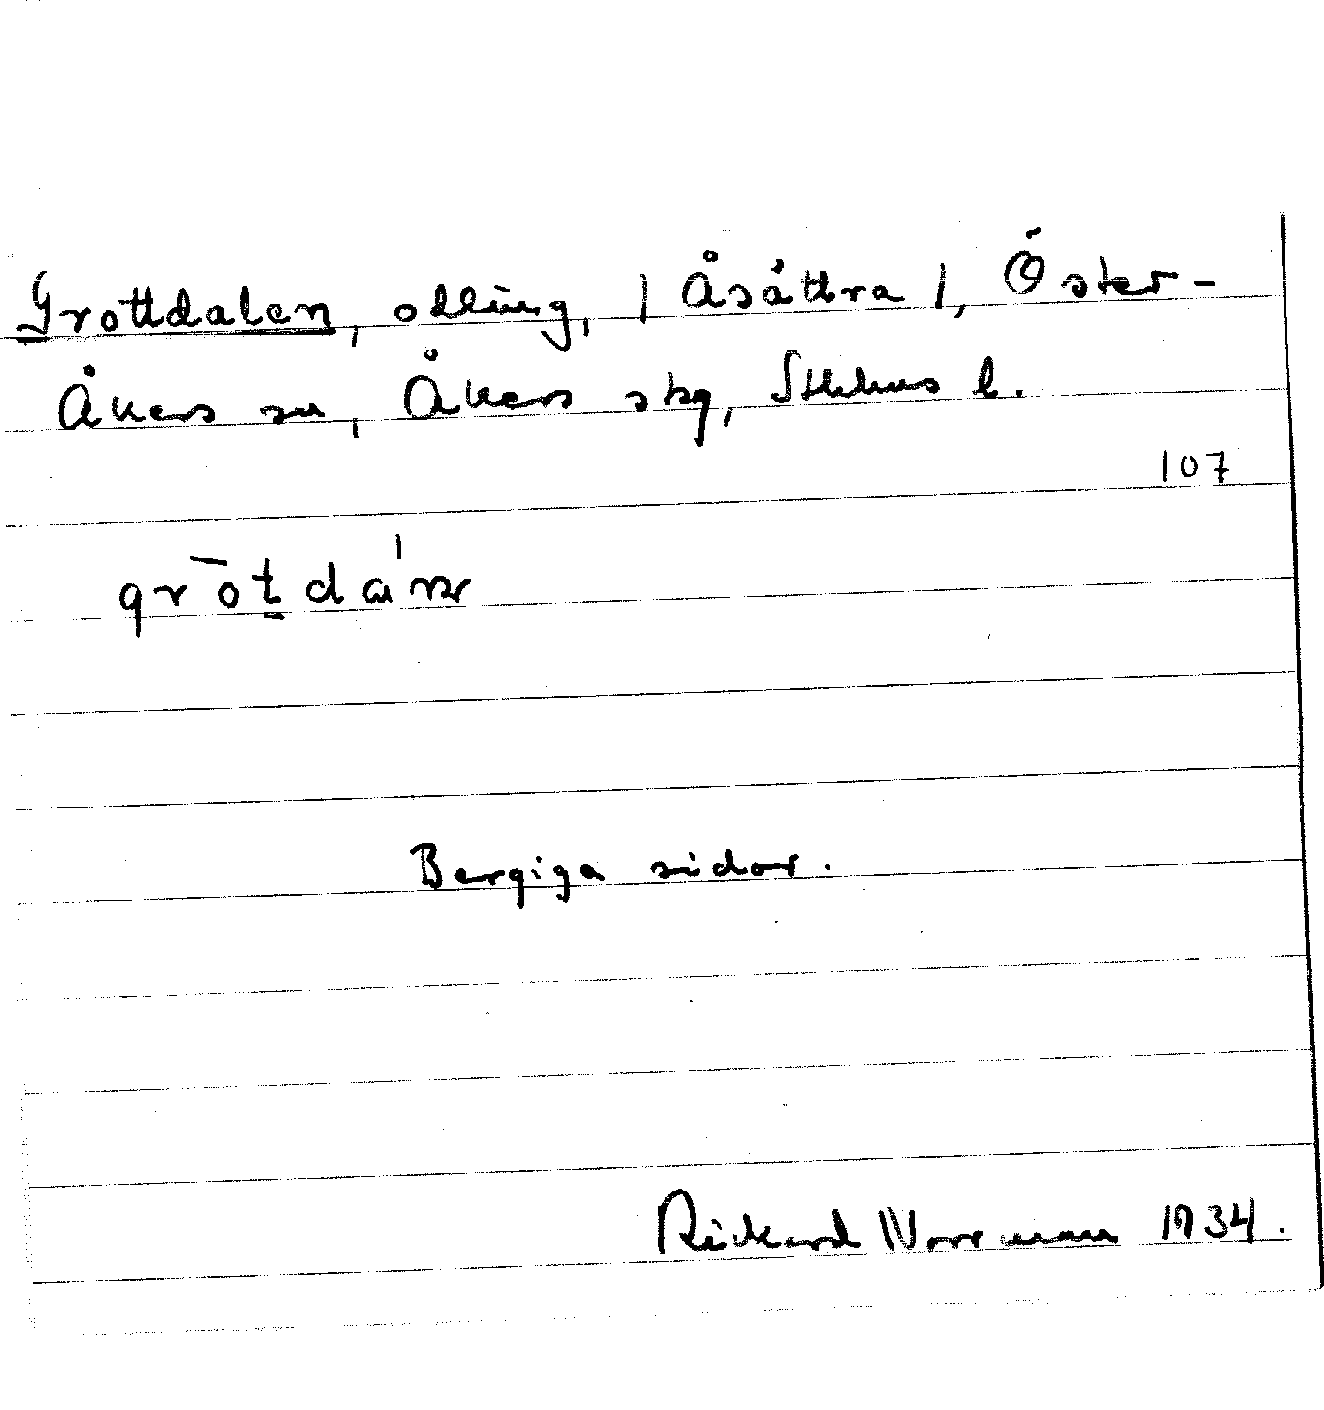 Grottdalen, odling, | Åsättra |, Öster-
Åkers sn, Åkers skg, Sthlms l.
107
Bergiga sidor.
Rickard Norrman 1934.